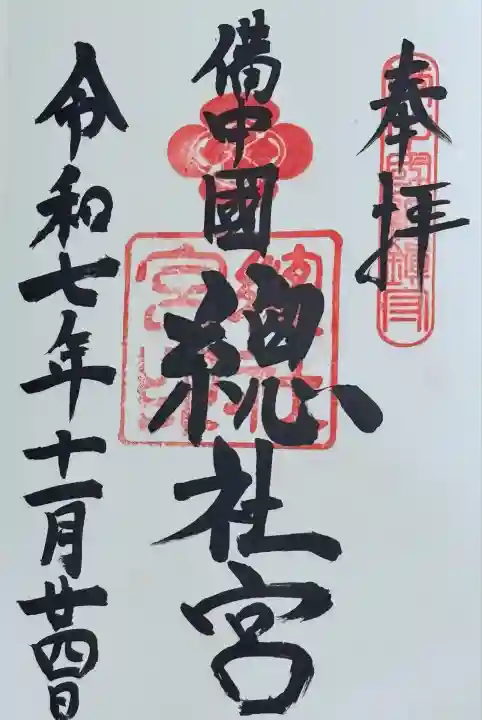 奉拝
備中國
總社宮
令和七年十一月廿四日